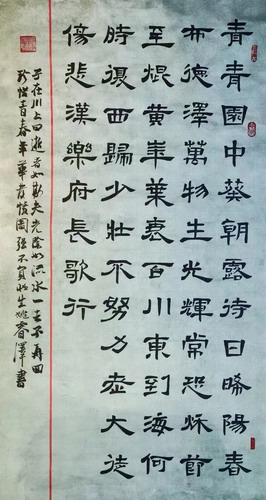 青青園中葵朝露待日晞陽春
布德澤萬物生光輝常恐秋節
至焜黃華葉衰百川東到海何
時復西歸少壯不努力老大徒
傷悲漢樂府長歌行
子在川上曰逝者如斯夫光陰如洪水一去不再回
珍惜青春年華發憤圖強不負此生睿澤書